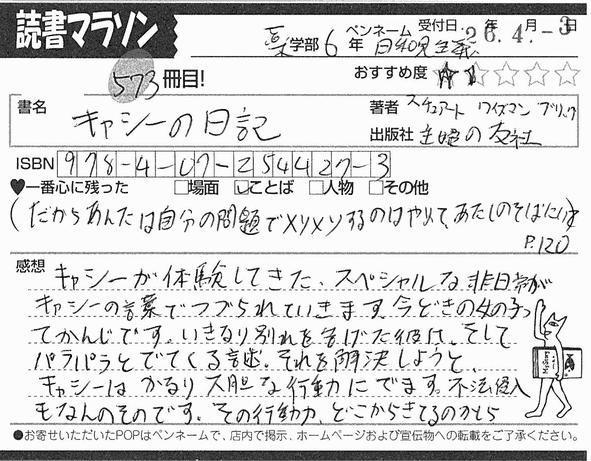 読書マラソン
薬学部6年 ペンネーム 日和見主義 受付日. 26.年4.月-3日
573冊目! おすすめ度 ★★☆☆☆
書名 キャシーの日記
著者 スチュアート ワイズマン ブリック
出版社 主婦の友社
ISBN 978-4-07-254427-3
♥一番心に残った □場面 ☑ことば □人物 □その他
(だからあんたは自分の問題でメソメソするのはやめて、あたしのそばにいす
P.120
感想 キャシーが体験してきた、スペシャルな非日常が
キャシーの言葉でつづられていきます。今どきの女の子っ
てかんじです。いきなり別れを告げた彼は、そして
パラパラとでてくる言述。それを解決しようと、
キャシーはかなり大胆な行動にでます。不法侵入
もなんのそのです。その行動力、どこからきてるのかしら
●お寄せいただいたPOPはペンネームで、店内で掲示、ホームページおよび宣伝物への転載をご了承ください。